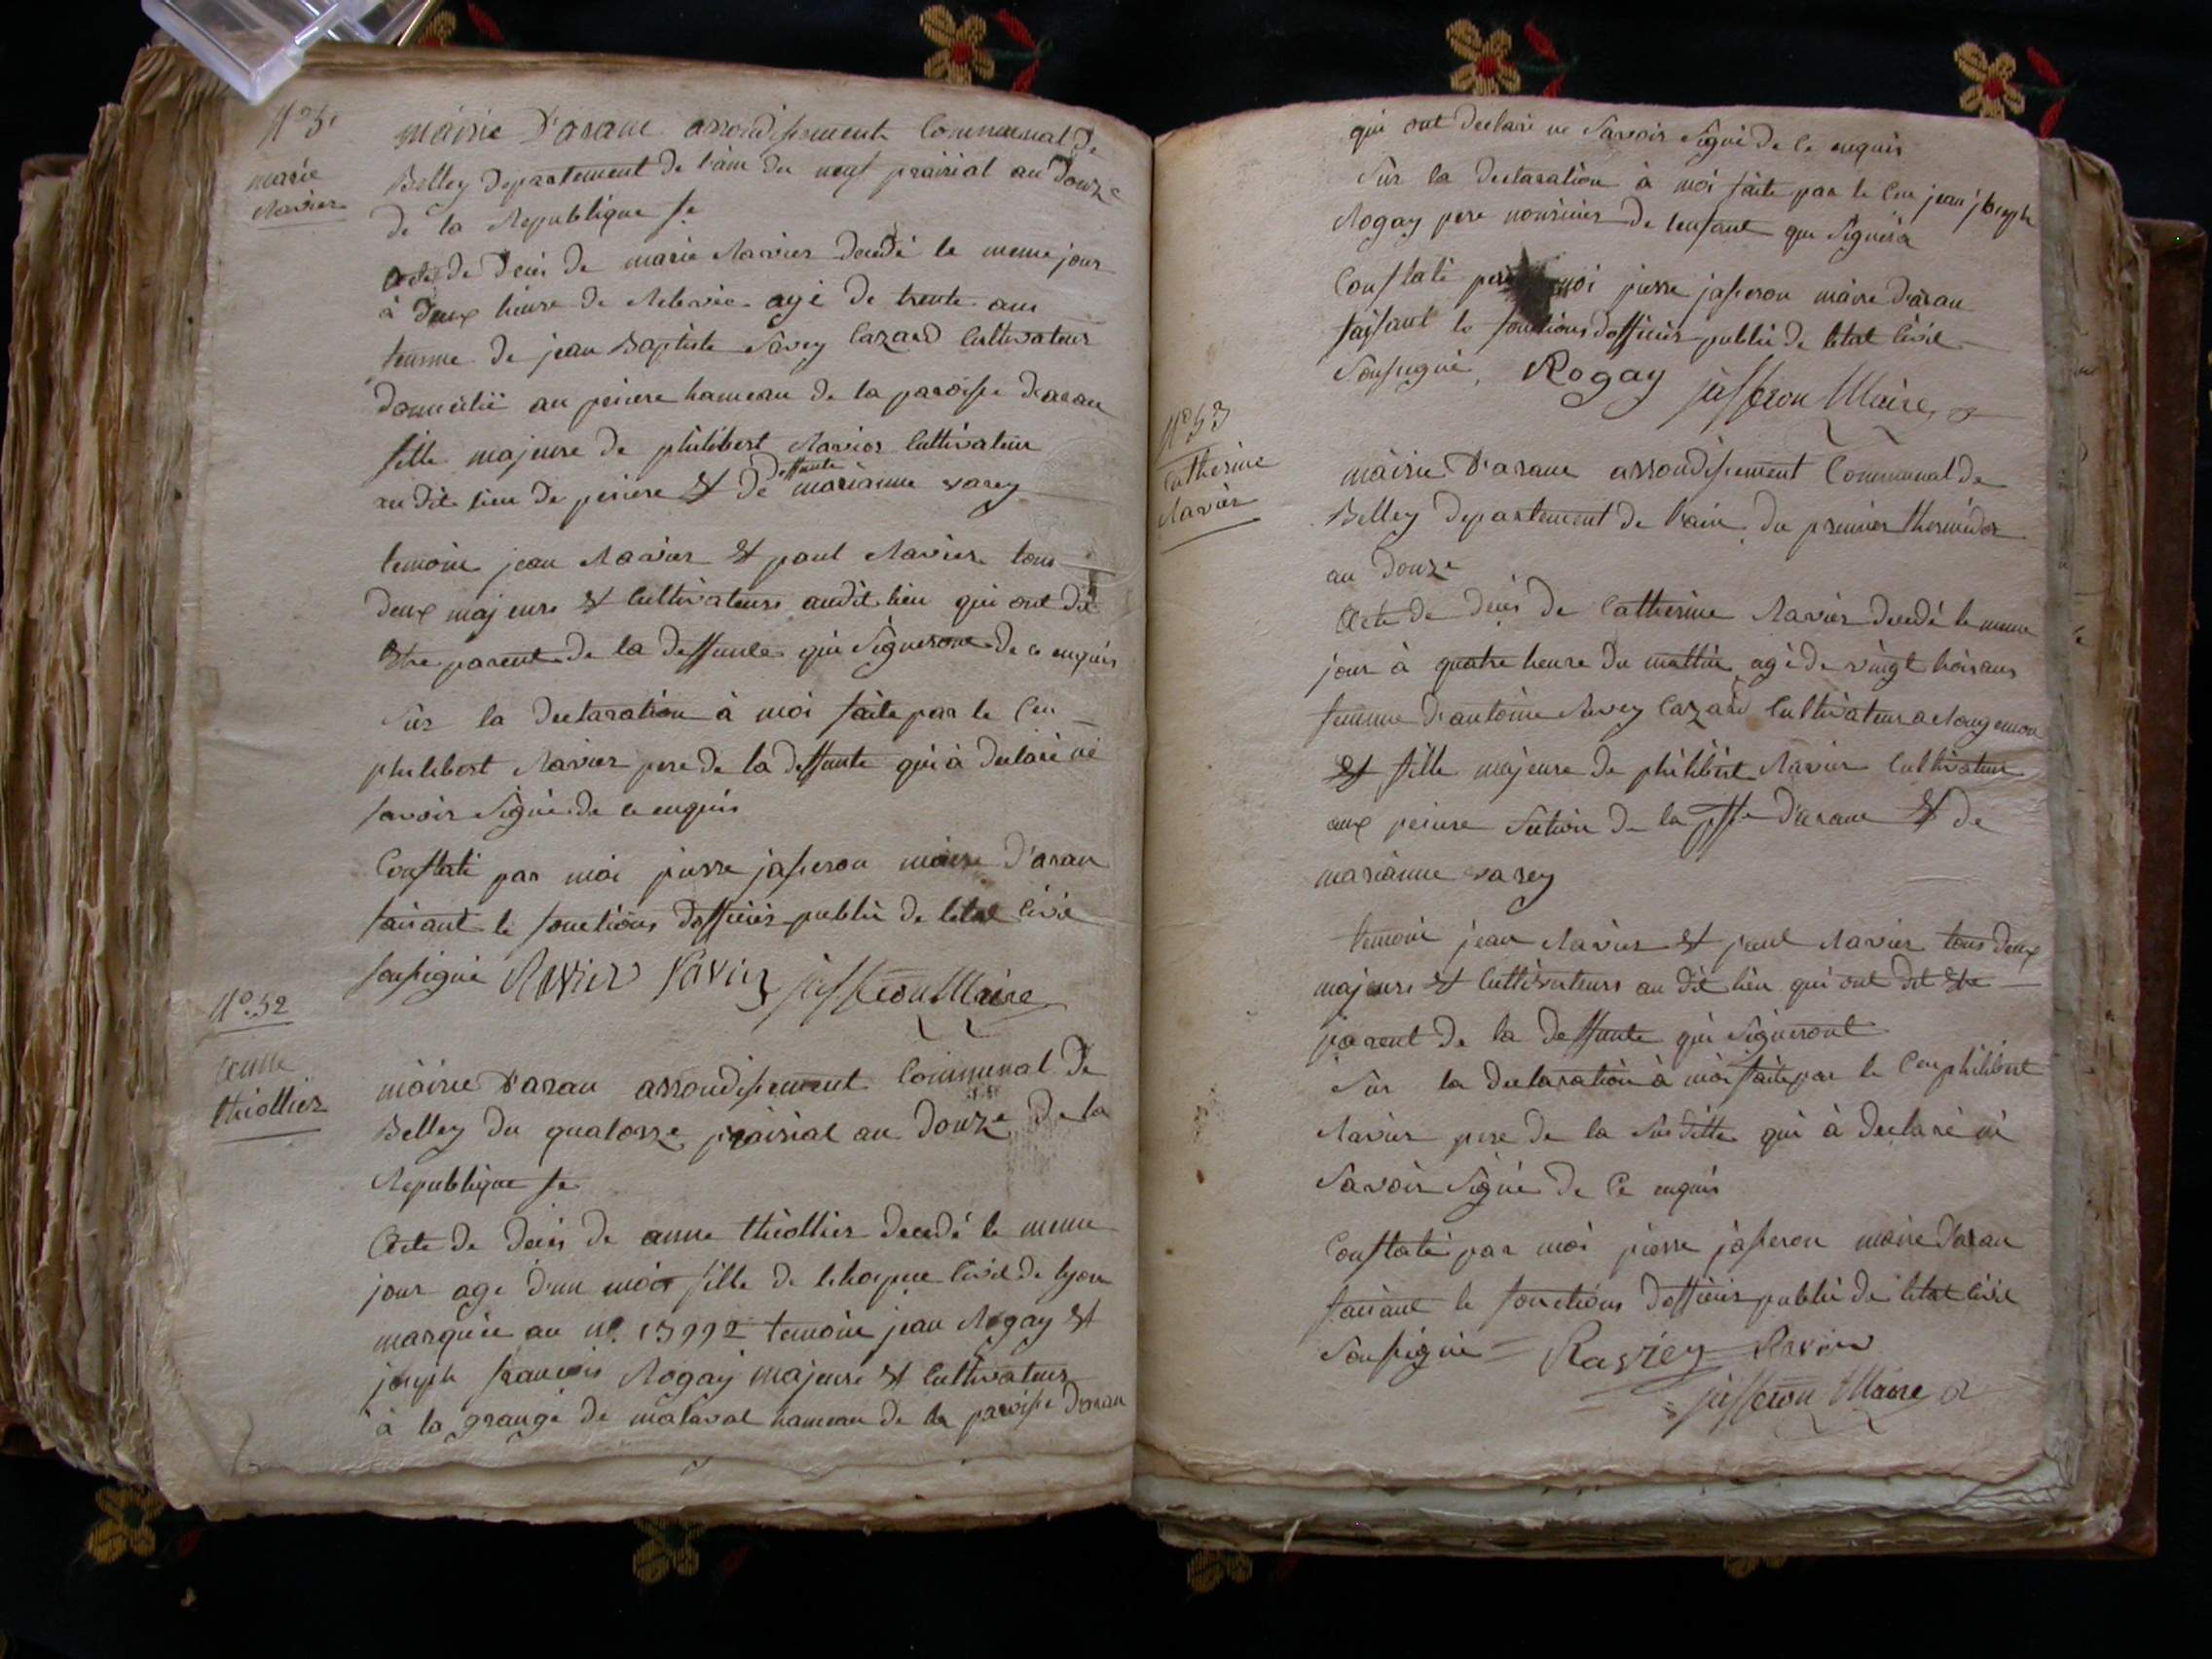 N° 51
marie
Ravier
mairie D'arane arrondissement Communal De
Belley Departement De l'ain du neuf prairial an Douze
De la Republique fse
Acte De Deces De marie Ravier decedé le meme jour
à Deux heure De Relevée agé De trente ans
femme De jean Baptiste Savey Cazard Cultivateur
Domicilié au periere hameau De la paroisse D'aran
fille majeure De philibert Ravier Cultivateur
au dit lieu De periere et De deffunte marianne varey
temoin jean Ravier et paul Ravier tous
Deux majeurs et Cultivateurs audit lieu qui ont dit
Etre parent De la deffunte qui Signeront De ce enquis
Sur la Declaration à moi faite par le Cen
philibert Ravier pere De la deffunte qui à Declaré né
savoir Signé De ce enquis
Constaté par moi pierre jasseron maire D'aran
faisant le fonctions D'officier public De letat Civil
soussigné Ravier Ravier jasseron Maire
N° 52
anne
thiollier
mairie D'aran arrondissement Communal De
Belley Du quatorze prairial an Douze De la
Republique fse
Acte De Deces De anne thiollier Decedé le meme
jour age D'un mois fille De lhospice Civil De lyon
marquée au N° 13992 temoin jean Rogay et
joseph francois Rogay majeurs et Cultivateurs
à la grange De malaval hameau De la paroisse D'aran
qui ont Declaré ne Savoir Signé De ce enquis
Sur la Declaration à moi faite par le Cen jean joseph
Rogay pere nourricier De lenfant qui Signera
Constaté par moi pierre jasseron maire D'aran
faisant le fonctions D'officier public De letat Civil
Soussigné, Rogay jasseron Maire
N° 53
Catherine
Ravier
mairie D'arane arrondissement Communal De
Belley Departement De l'ain du premier thermidor
an Douze
Acte De Deces De Catherine Ravier decedé le meme
jour à quatre heure Du mattin agé De vingt trois ans
femme D'antoine Savey Cazard Cultivateur a Rougemon
et fille majeure De philibert Ravier Cultivateur
aux periere Section De la psse D'arane et De
marianne varey
temoin jean Ravier et paul Ravier tous Deux
majeurs et Cultivateurs au dit lieu qui ont dit Etre
parent De la deffunte qui Signeront
Sur la Declaration à moi faite par le Cen philibert
Ravier pere De la Suditte qui à Declaré né
Savoir Signé De Ce enquis
Constaté par moi pierre jasseron maire D'aran
faisant le fonctions D'officier public De letat Civil
Soussigné = Ravier Ravier
jasseron Maire